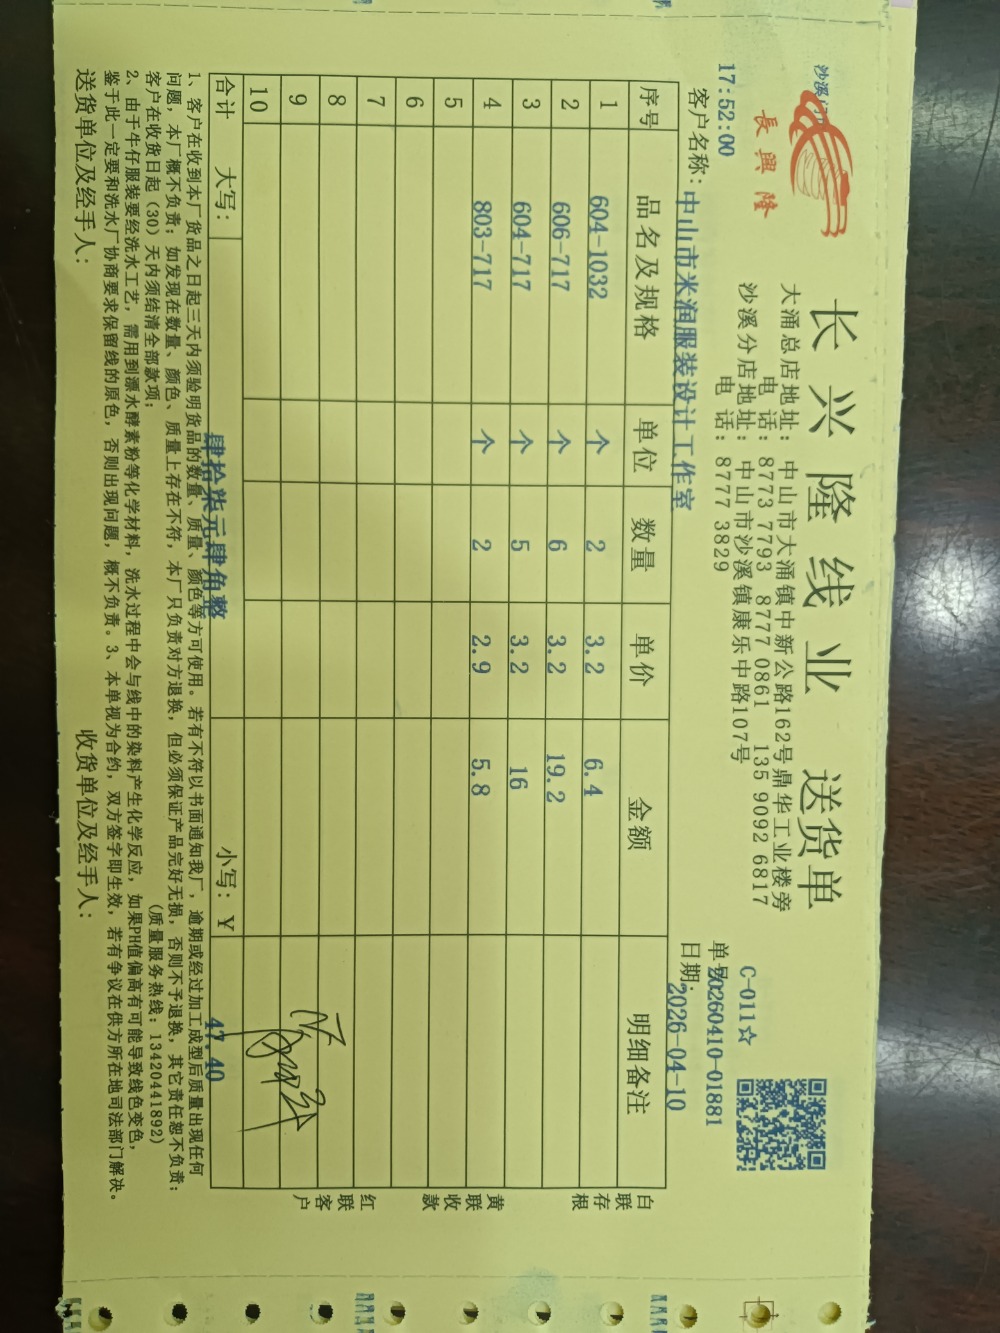 沙溪门
長興隆
长兴隆线业 送货单
C-011☆
大涌总店地址: 中山市大涌镇中新公路162号鼎华工业楼旁
电 话: 8773 7793 8777 0861 135 9092 6817
沙溪分店地址: 中山市沙溪镇康乐中路107号
电 话: 8777 3829
17:52:00
单号: 20260410-01881
客户名称: 中山市米润服装设计工作室
日期: 2026-04-10
序号 品名及规格 单位 数量 单价 金额 明细备注
1 604-1032 个 2 3.2 6.4
2 606-717 个 6 3.2 19.2
3 604-717 个 5 3.2 16
4 803-717 个 2 2.9 5.8
5
6
7
8
9
10
合计 大写: 肆拾柒元肆角整 小写: ¥ 47.40
白联存根
黄联收款
红联客户
1、客户在收到本厂货品之日起三天内须验明货品的数量、质量、颜色等方可使用。若有不符以书面通知我厂，逾期或经过加工成型后质量出现任何
问题，本厂概不负责；如发现在数量、颜色、质量上存在不符，本厂只负责对方退换，但必须保证产品完好无损，否则不予退换，其它责任恕不负责；
客户在收货日起（30）天内须结清全部款项； (质量服务热线: 13420441892)
2、由于牛仔服装要经洗水工艺，需用到漂水酵素粉等化学材料，洗水过程中会与线中的染料产生化学反应，如果PH值偏高有可能导致线色变色，
鉴于此一定要和洗水厂协商要求保留线的原色，否则出现问题，概不负责。3、本单视为合约，双方签字即生效，若有争议在供方所在地司法部门解决。
送货单位及经手人: 收货单位及经手人: